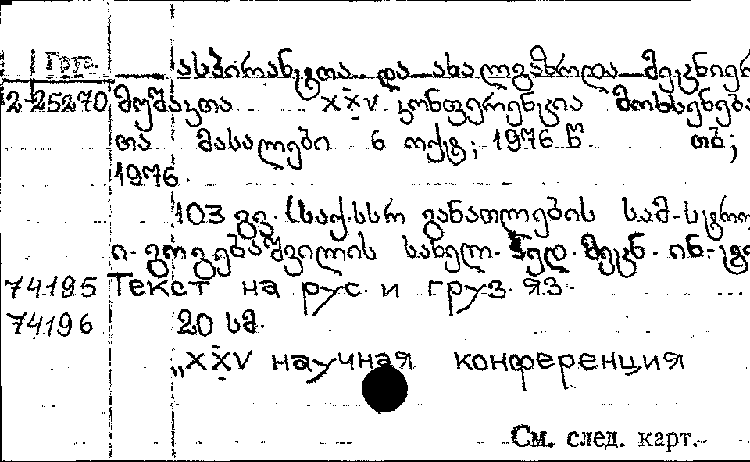 Груз.
ასპირანტთა და ახალგაზრდა მეცნიერ
2-25270 მუშაკთა XXV კონფერენცია მოხსენება
თა მასალები 6 ოქტ; 1976 წ. თბ;
1976.
103 გვ. (საქ.სსრ განათლების სამ-სტრო
ი. გოგებაშვილის სახელ. პედ. მეცნ. ინ-ტი
74195 Текст на рус. и груз. яз.
74196 20 სმ.
„XXV научная конференция
См. след. карт.